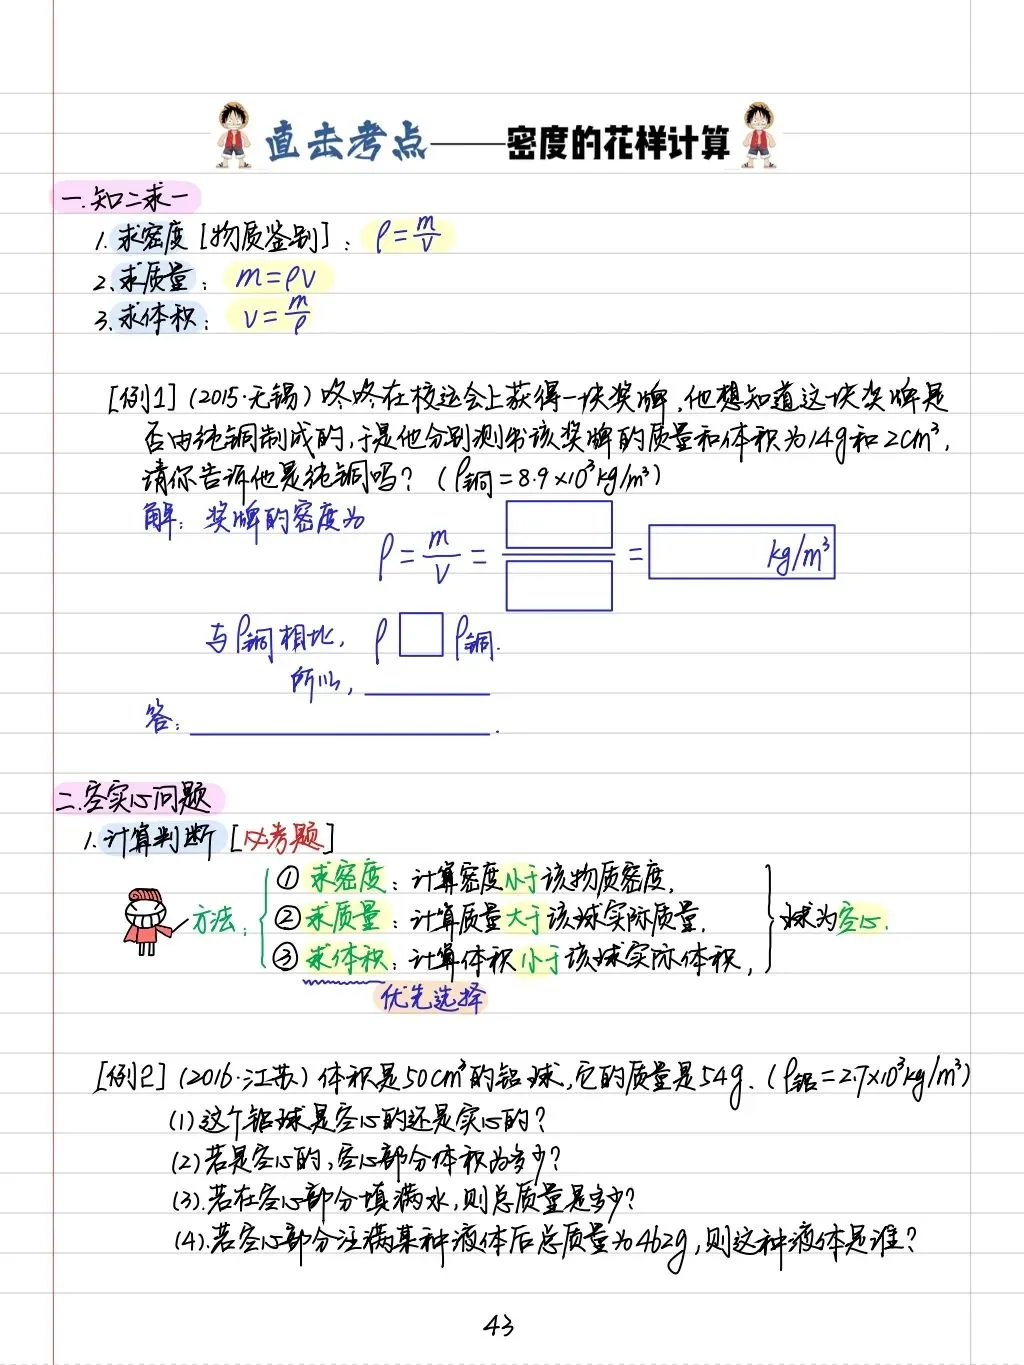 直击考点——密度的花样计算
一.知二求一
1.求密度[物质鉴别]：ρ=m/V
2.求质量：m=ρV
3.求体积：V=m/ρ
[例1](2015·无锡)咚咚在校运会上获得一块奖牌,他想知道这块奖牌是
否由纯铜制成的,于是他分别测出该奖牌的质量和体积为14g和2cm³,
请你告诉他是纯铜吗？(ρ铜=8.9×10³kg/m³)
解：奖牌的密度为
ρ=m/V= = kg/m³
与ρ铜相比,ρ ρ铜.
所以,
答： .
二.空实心问题
1.计算判断[必考题]
方法：
①求密度：计算密度小于该物质密度,
②求质量：计算质量大于该球实际质量,
③求体积：计算体积小于该球实际体积,
球为空心.
优先选择
[例2](2016·江苏)体积是50cm³的铝球,它的质量是54g.(ρ铝=2.7×10³kg/m³)
(1)这个铝球是空心的还是实心的？
(2)若是空心的,空心部分体积为多少？
(3).若在空心部分填满水,则总质量是多少？
(4).若空心部分注满某种液体后总质量为462g,则这种液体是谁？
43